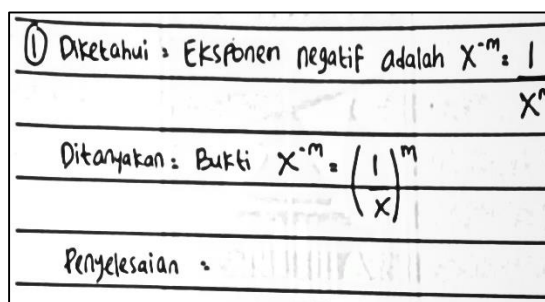 ① Diketahui : Eksponen negatif adalah X⁻ᵐ = 1/Xᵐ
Ditanyakan = Bukti X⁻ᵐ = (1/X)ᵐ
Penyelesaian :